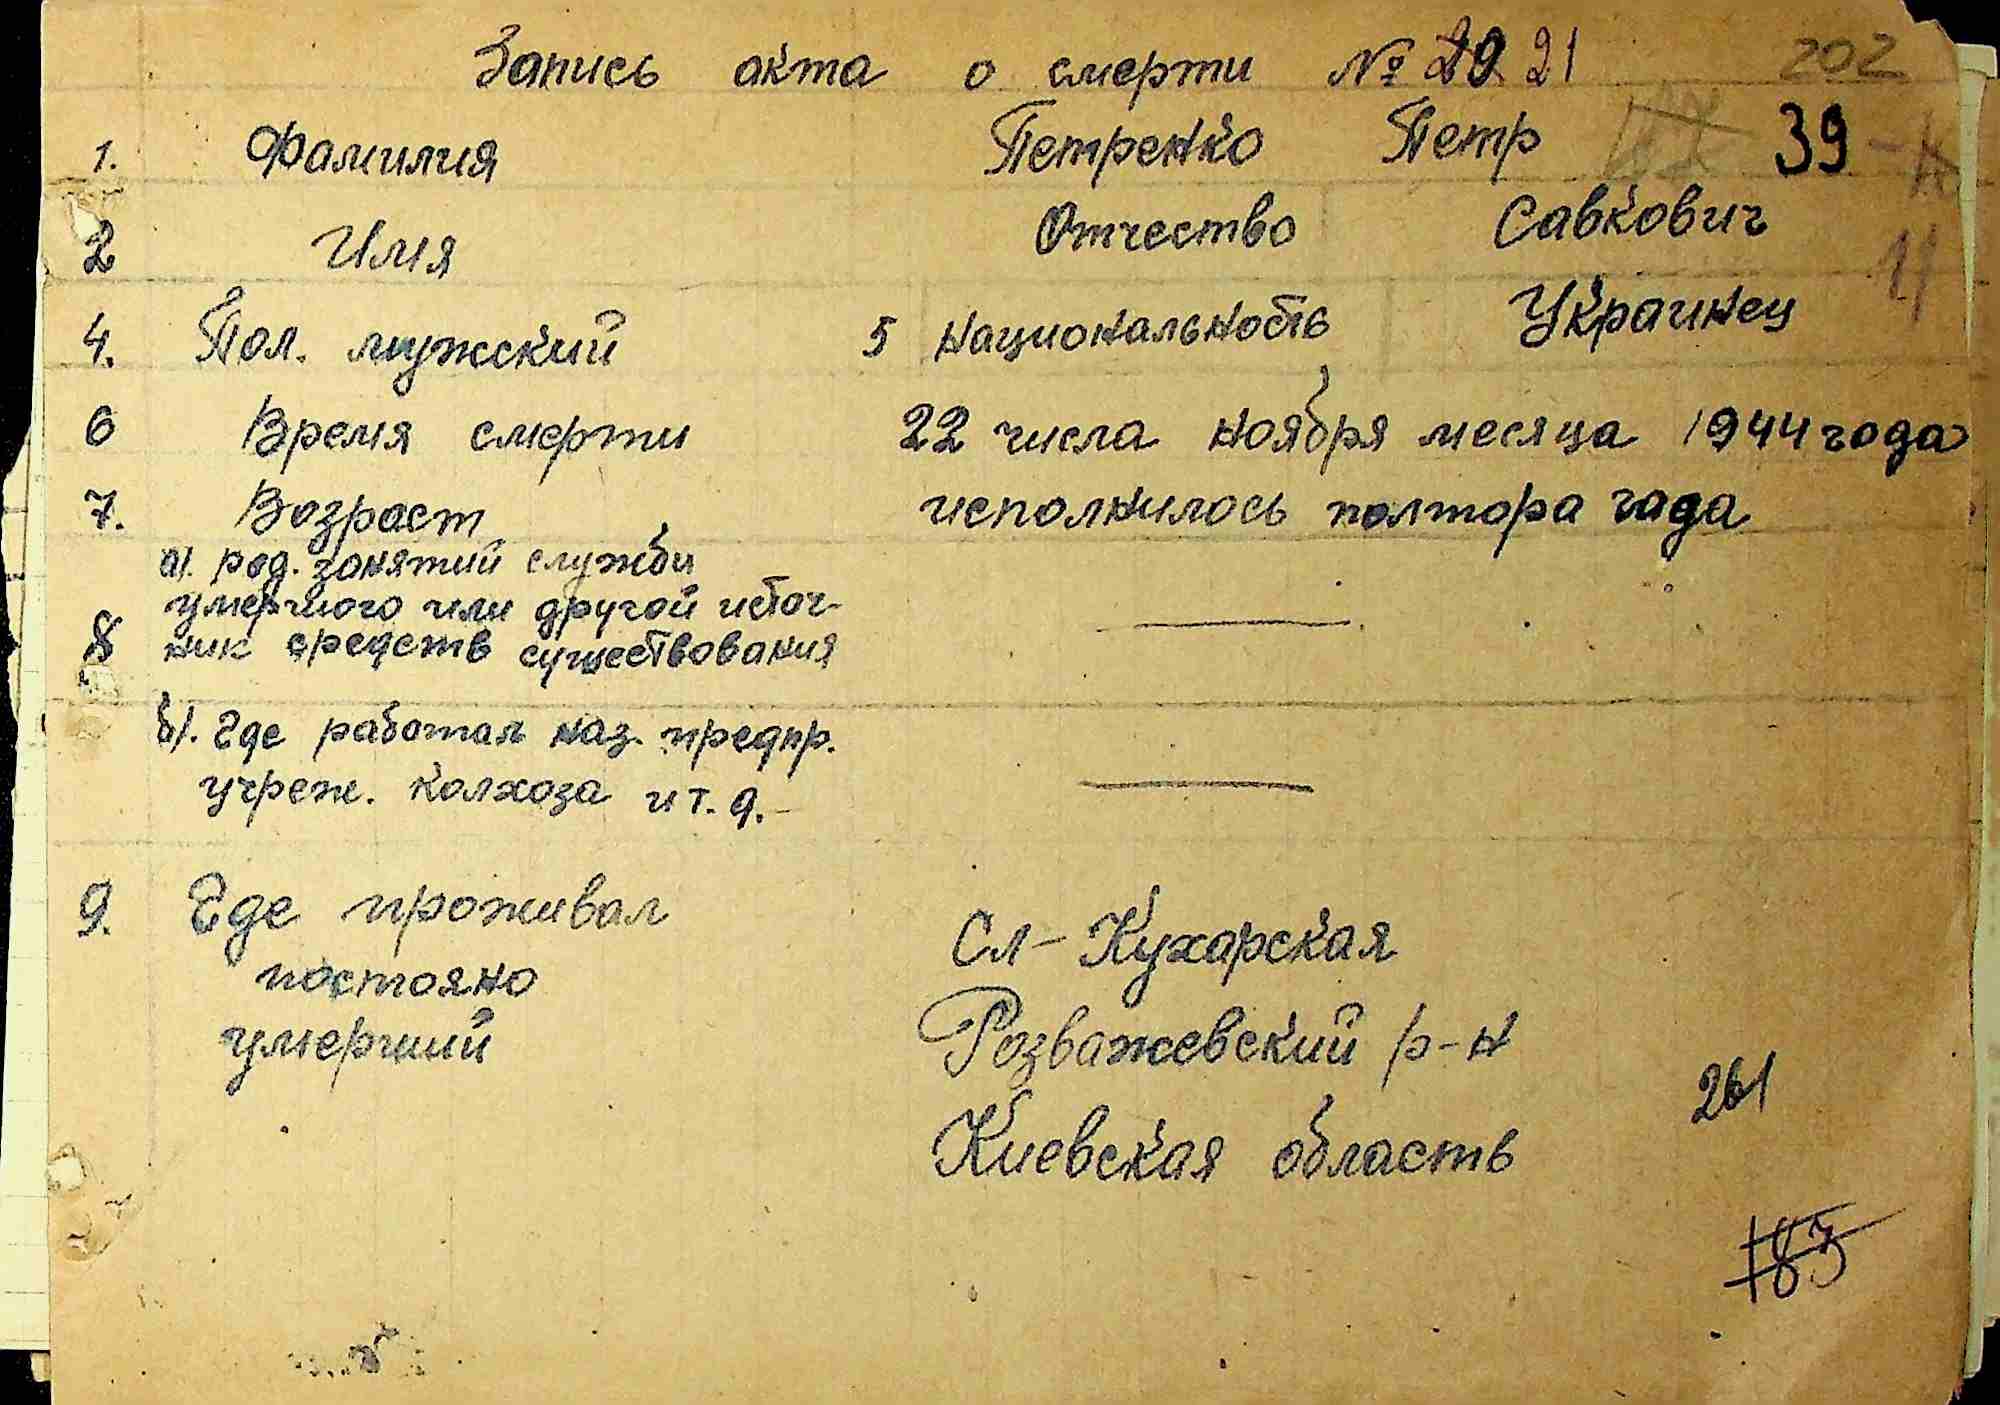 Запись акта о смерти № 20 21 202
1. Фамилия Петренко Петр 39
2 Имя Отчество Савкович
4. Пол. мужский 5 национальность Украинец
6 Время смерти 22 числа ноября месяца 1944 года
7. Возраст исполнилось полтора года
а). род. занятий служби
умершого или другой источ-
8 ник средств существования
б). Где работал наз. предпр.
учреж. колхоза и т. д. -
9. Где проживал
постояно
умерший
Сл - Кухарская
Розважевский р-н
Киевская область
261
183